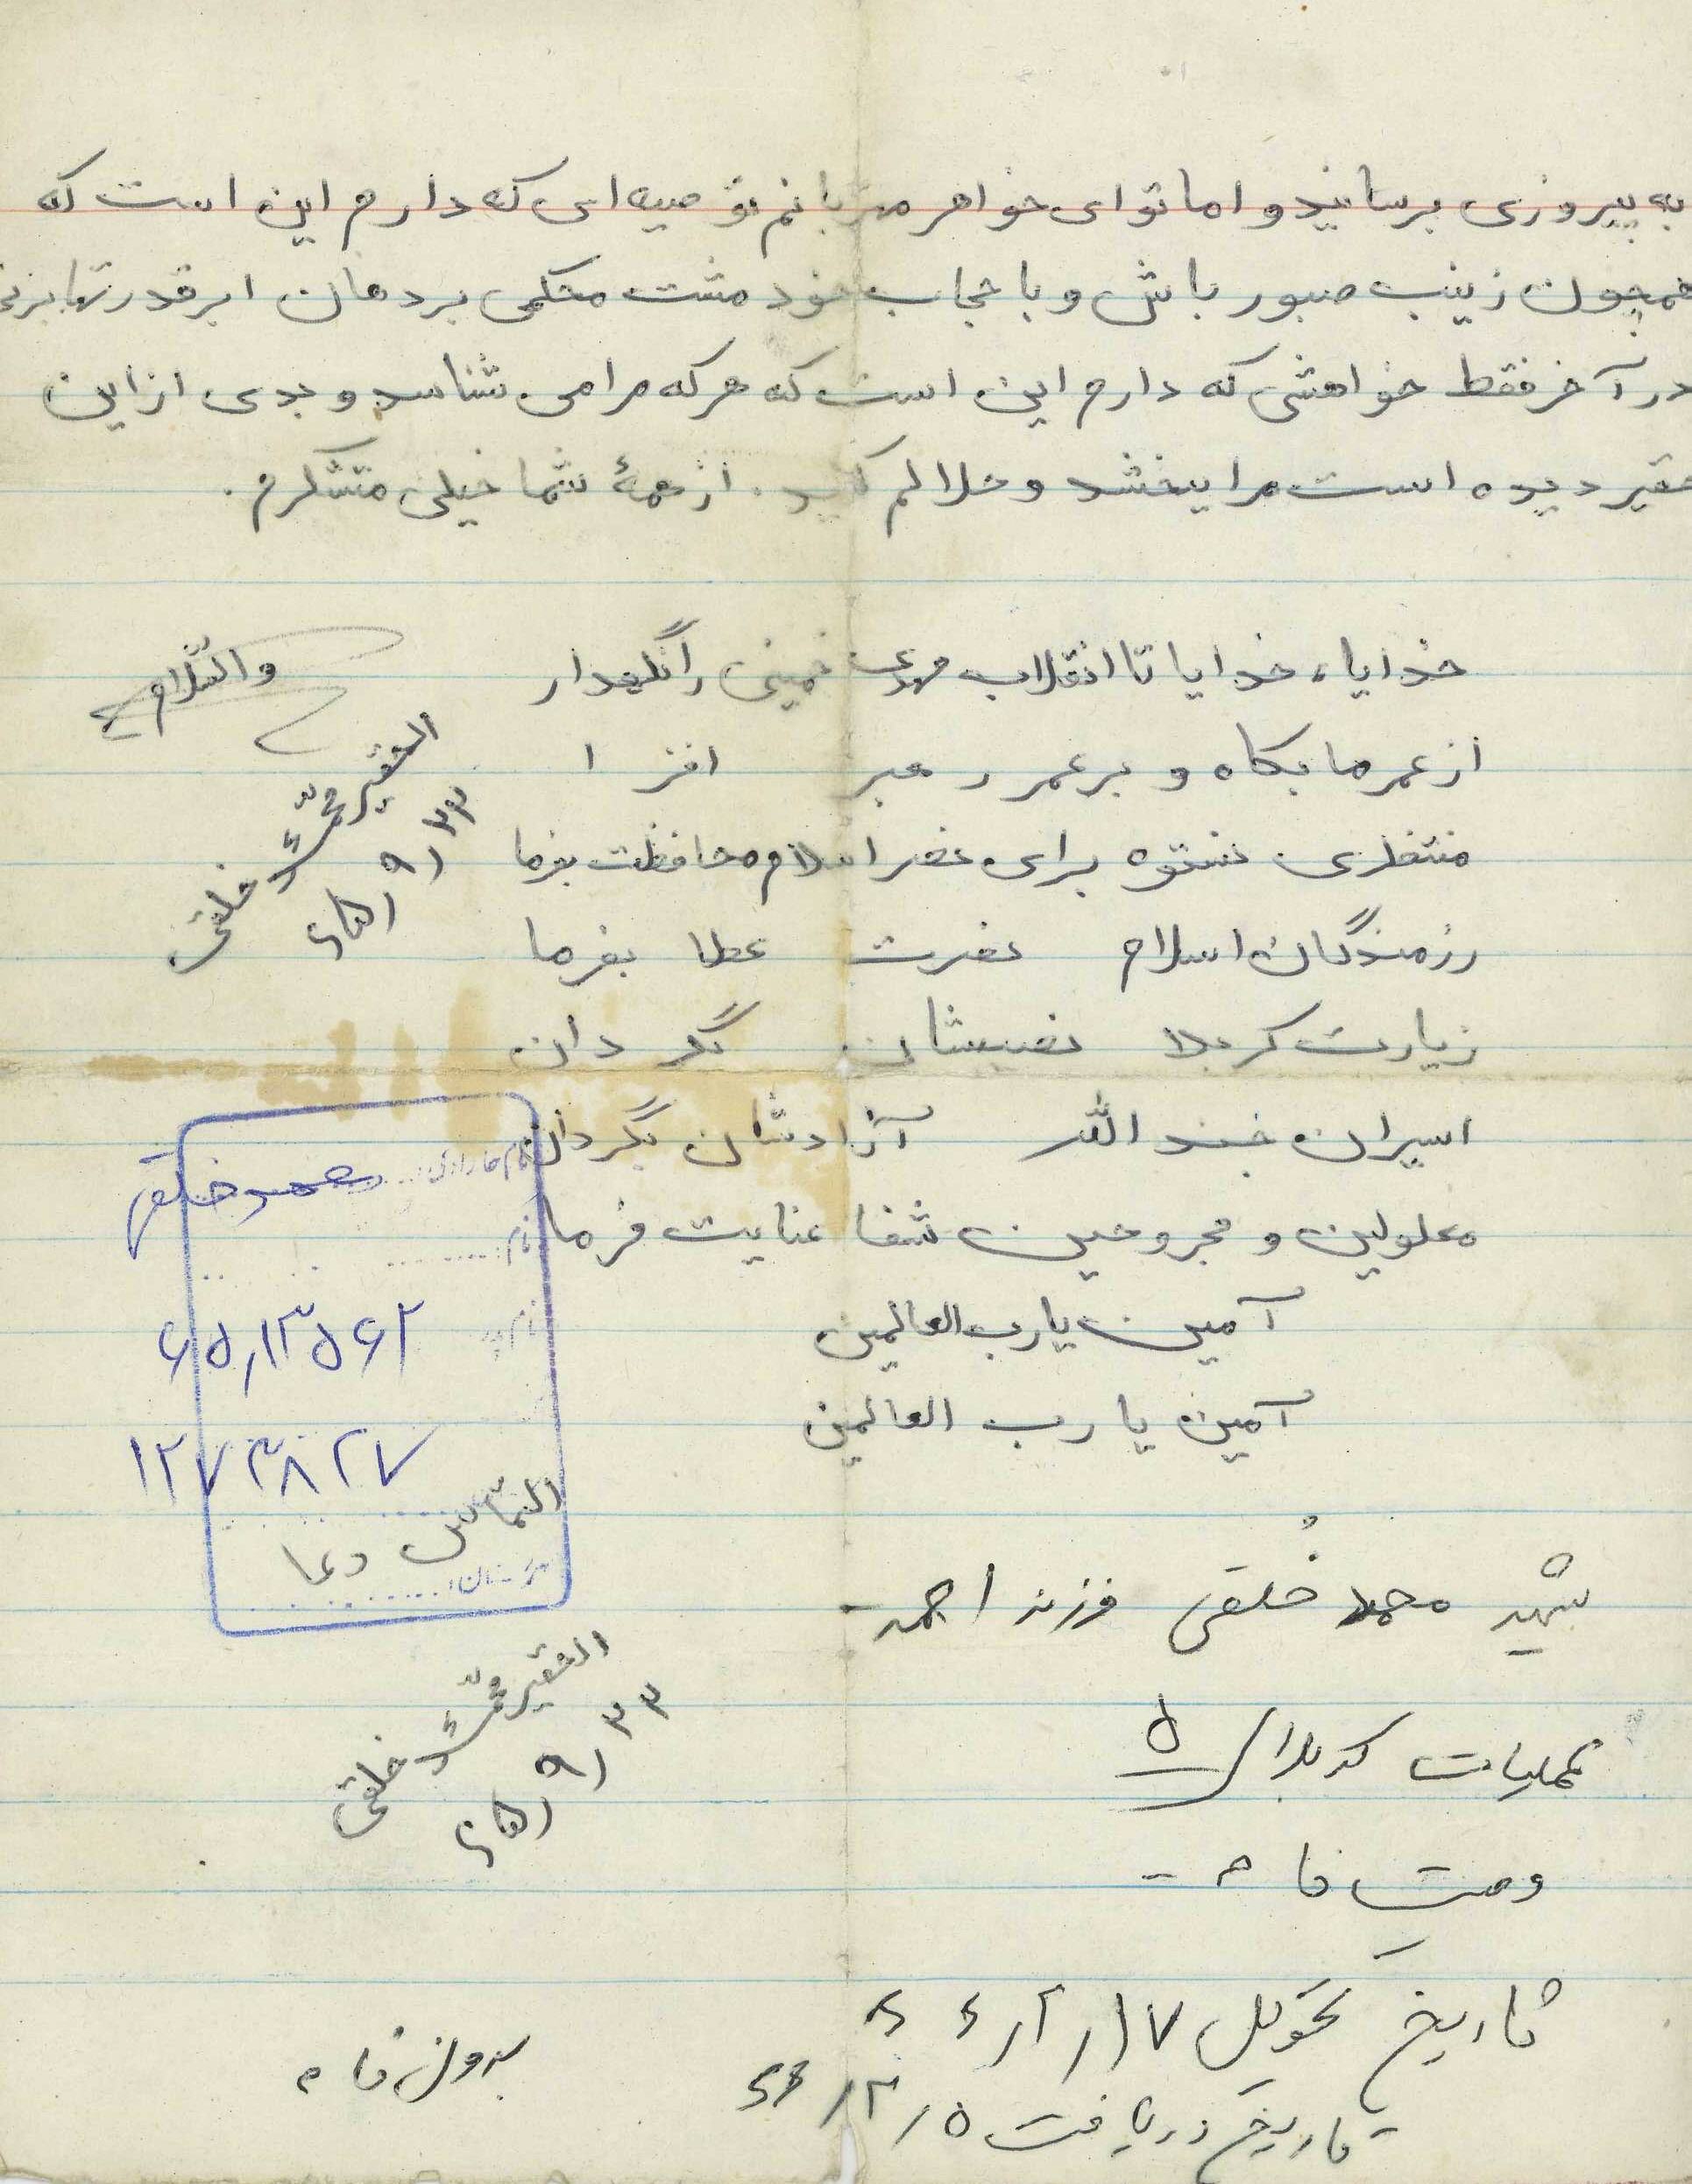 به پیروزی برسانید و اما تو ای خواهر مهربانم توصیه ای که دارم این است که
همچون زینب صبور باش و با حجاب خود مشت محکمی بر دهان ابرقدرتها بزن
در آخر فقط خواهشی که دارم این است که هر که مرا می شناسد و بدی از این
حقیر دیده است مرا ببخشد و حلالم کنید. از همهٔ شما خیلی متشکرم.
خدایا، خدایا تا انقلاب مهدی خمینی را نگهدار
والسّلام
از عمر ما بکاه و بر عمر رهبر افزا
منتظری نستوه برای نصر اسلام محافظت بفرما
رزمندگان اسلام نصرت عطا بفرما
زیارت کربلا نصیبشان گردان
اسیران جند الله آزادشان بگردان
معلولین و مجروحین شفا عنایت فرما
آمین یا رب العالمین
آمین یا رب العالمین
الفقیر محمّد خلقی
۶۵/۹/۲۳
نام خانوادگی: محمد خلقی
نام:
نام پدر
۶۵,۱۳۵۶۲
۱۲۷۳۸۲۷
التماس دعا
شهید محمد خُلقی فرزند احمد
عملیات کربلا/۵
وصیت نامه
الفقیر محمّد خلقی
۶۵/۹/۲۳
تاریخ تحویل ۱۷/۲/۶۶
تاریخ دریافت ۵/۳/۶۶
بدون نامه